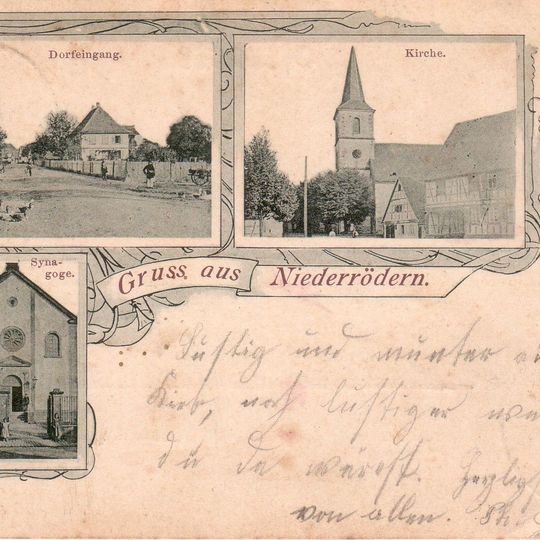 Dorfeingang.
Kirche.
Syna-
goge.
Gruss aus Niederrödern.
Lustig und munter
Kirb, noch lustiger
du da wärest.
von allen.